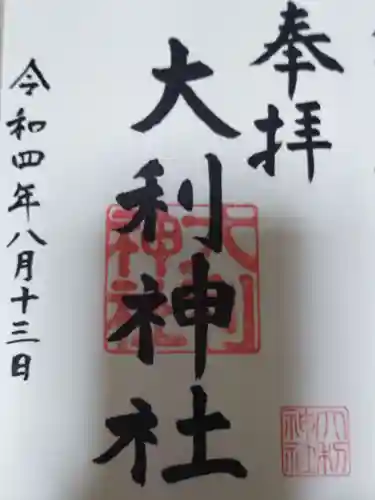 奉拝
大利神社
大利
神社
令和四年八月十三日
大利
神社